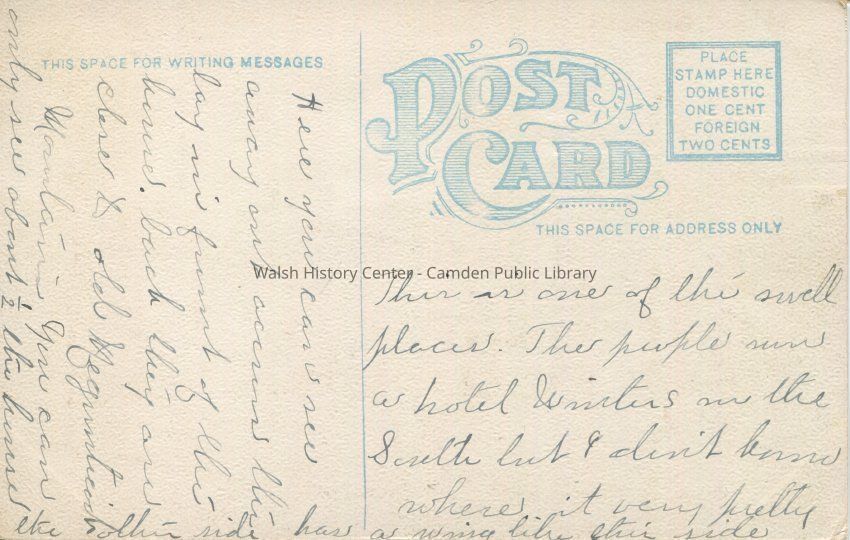 THIS SPACE FOR WRITING MESSAGES
POST CARD
PLACE
STAMP HERE
DOMESTIC
ONE CENT
FOREIGN
TWO CENTS
THIS SPACE FOR ADDRESS ONLY
Walsh History Center - Camden Public Library
Here you can see
away out across the
bay in front of the
house. back they are
close to old
Mountain You can
only see about 1/2 the house
the other side has a wing like this side
This is one of the swell
places. The people run
a hotel Winters in the
South but I don't know
where. it very pretty